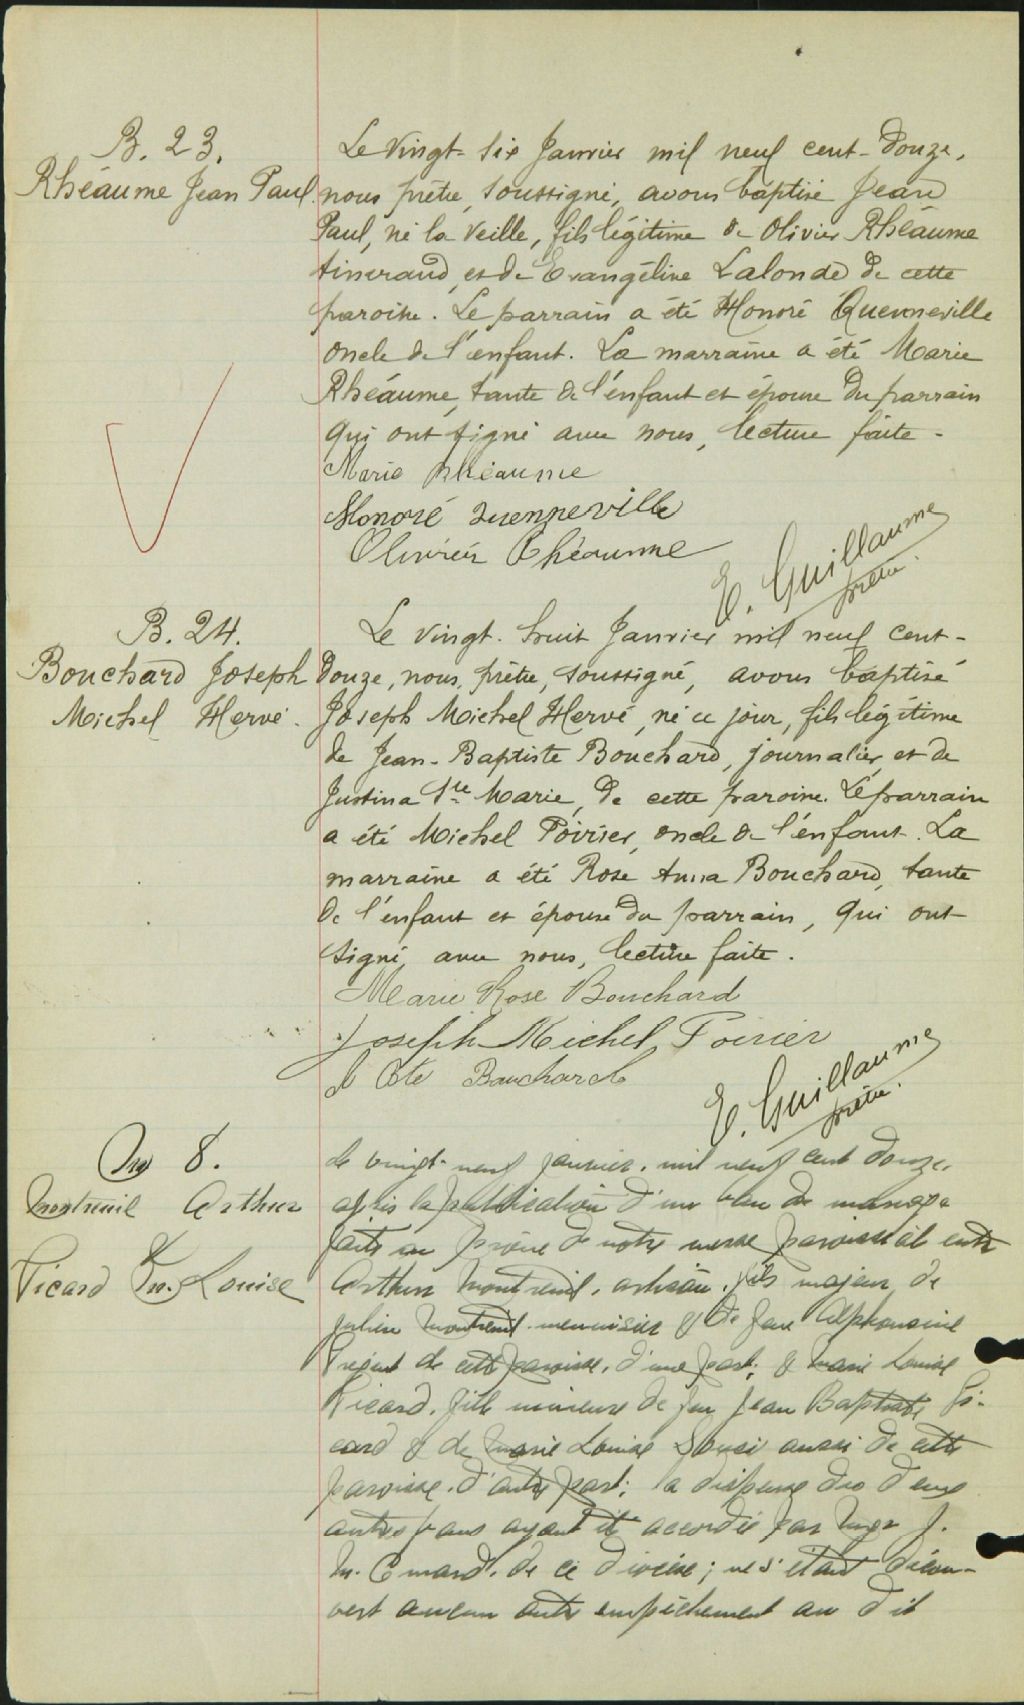 B. 23.
Rhéaume Jean Paul
Le vingt-six Janvier mil neuf cent-douze,
nous prêtre, soussigné, avons baptisé Jean
Paul, né la veille, fils légitime de Olivier Rhéaume
et de Evangéline Lalonde de cette
paroisse. Le parrain a été Honoré Quenneville
oncle de l'enfant. La marraine a été Marie
Rhéaume, tante de l'enfant et épouse du parrain
qui ont signé avec nous, lecture faite.
Marie Rhéaume
Honoré Quenneville
Olivier Rhéaume
E. Guillaume
prêtre.
B. 24.
Bouchard Joseph
Michel Hervé.
Le vingt-huit Janvier mil neuf cent-
douze, nous, prêtre, soussigné, avons baptisé
Joseph Michel Hervé, né ce jour, fils légitime
de Jean-Baptiste Bouchard, journalier et de
Justina Ste Marie, de cette paroisse. Le parrain
a été Michel Poirier, oncle de l'enfant. La
marraine a été Rose Anna Bouchard, tante
de l'enfant et épouse du parrain, qui ont
signé avec nous, lecture faite.
Marie Rose Bouchard
Joseph Michel Poirier
Bte Bouchard
E. Guillaume
prêtre.
M 8.
Montreuil Arthur
&
Picard M. Louise
Le vingt-neuf janvier, mil neuf cent douze,
après la publication d'un ban de mariage
faite au prône de notre messe paroissiale entre
Arthur Montreuil, artisan, fils majeur de
Julien Montreuil menuisier & de feue Alphonsine
de cette paroisse, d'une part; & Marie Louise
Picard, fille mineure de feu Jean Baptiste Pi-
card & de Marie Louise Souci aussi de cette
paroisse, d'autre part; la dispense des deux
autres bans ayant été accordée par Mgr J.
M. Emard, de ce diocèse; ne s'étant décou-
vert aucun autre empêchement au dit